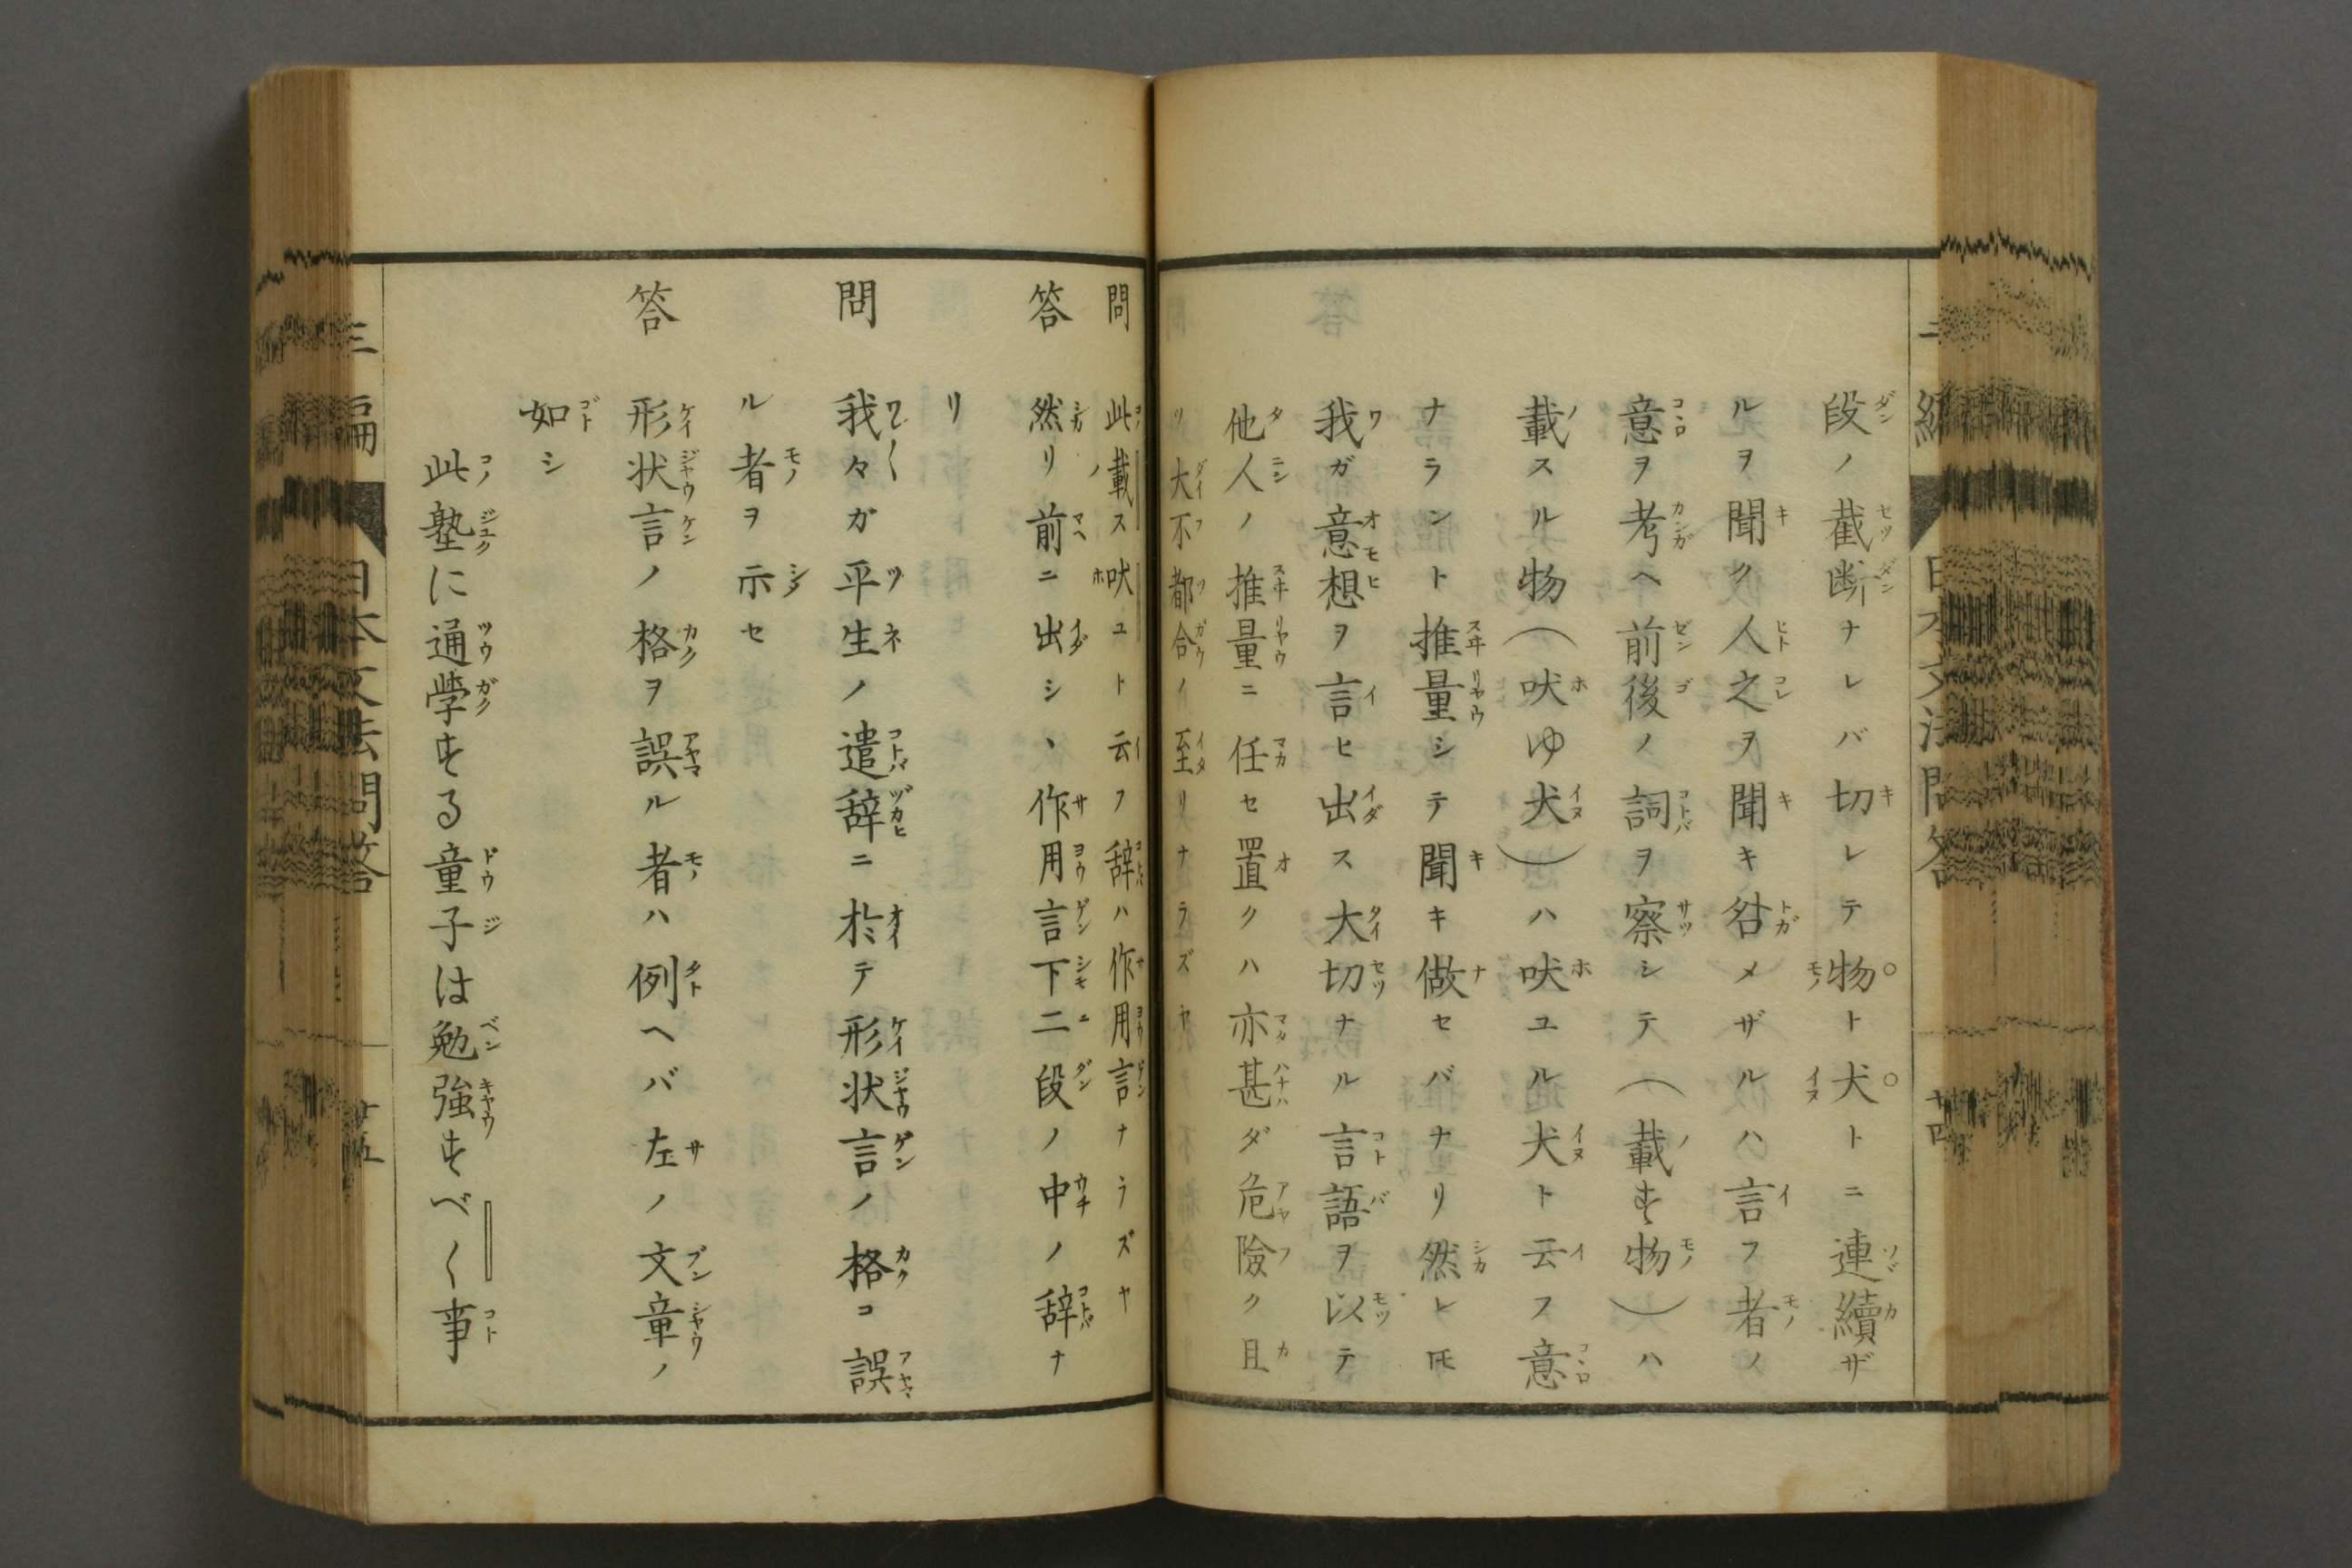 段ノ截断ナレバ切レテ物ト犬トニ連續ザ
ルヲ聞ク人之ヲ聞キ咎メザルハ言フ者ノ
意ヲ考ヘ前後ノ詞ヲ察シテ（載す物）ハ
載スル物（吠ゆ犬）ハ吠ユル犬ト云フ意
ナラント推量シテ聞キ做セバナリ然レ𪜈
我ガ意想ヲ言ヒ出ス大切ナル言語ヲ以テ
他人ノ推量ニ任セ置クハ亦甚ダ危險ク且
ツ大不都合ノ至リナラズヤ
問 此載ス吠ユト云フ辞ハ作用言ナラズヤ
答 然リ前ニ出シヽ作用言下二段ノ中ノ辞ナ
リ
問 我々ガ平生ノ遣辞ニ於テ形状言ノ格コ誤
ル者ヲ示セ
答 形状言ノ格ヲ誤ル者ハ例ヘバ左ノ文章ノ
如シ
此塾に通学する童子は勉強すべく事
三編 日本文法問答 廿五